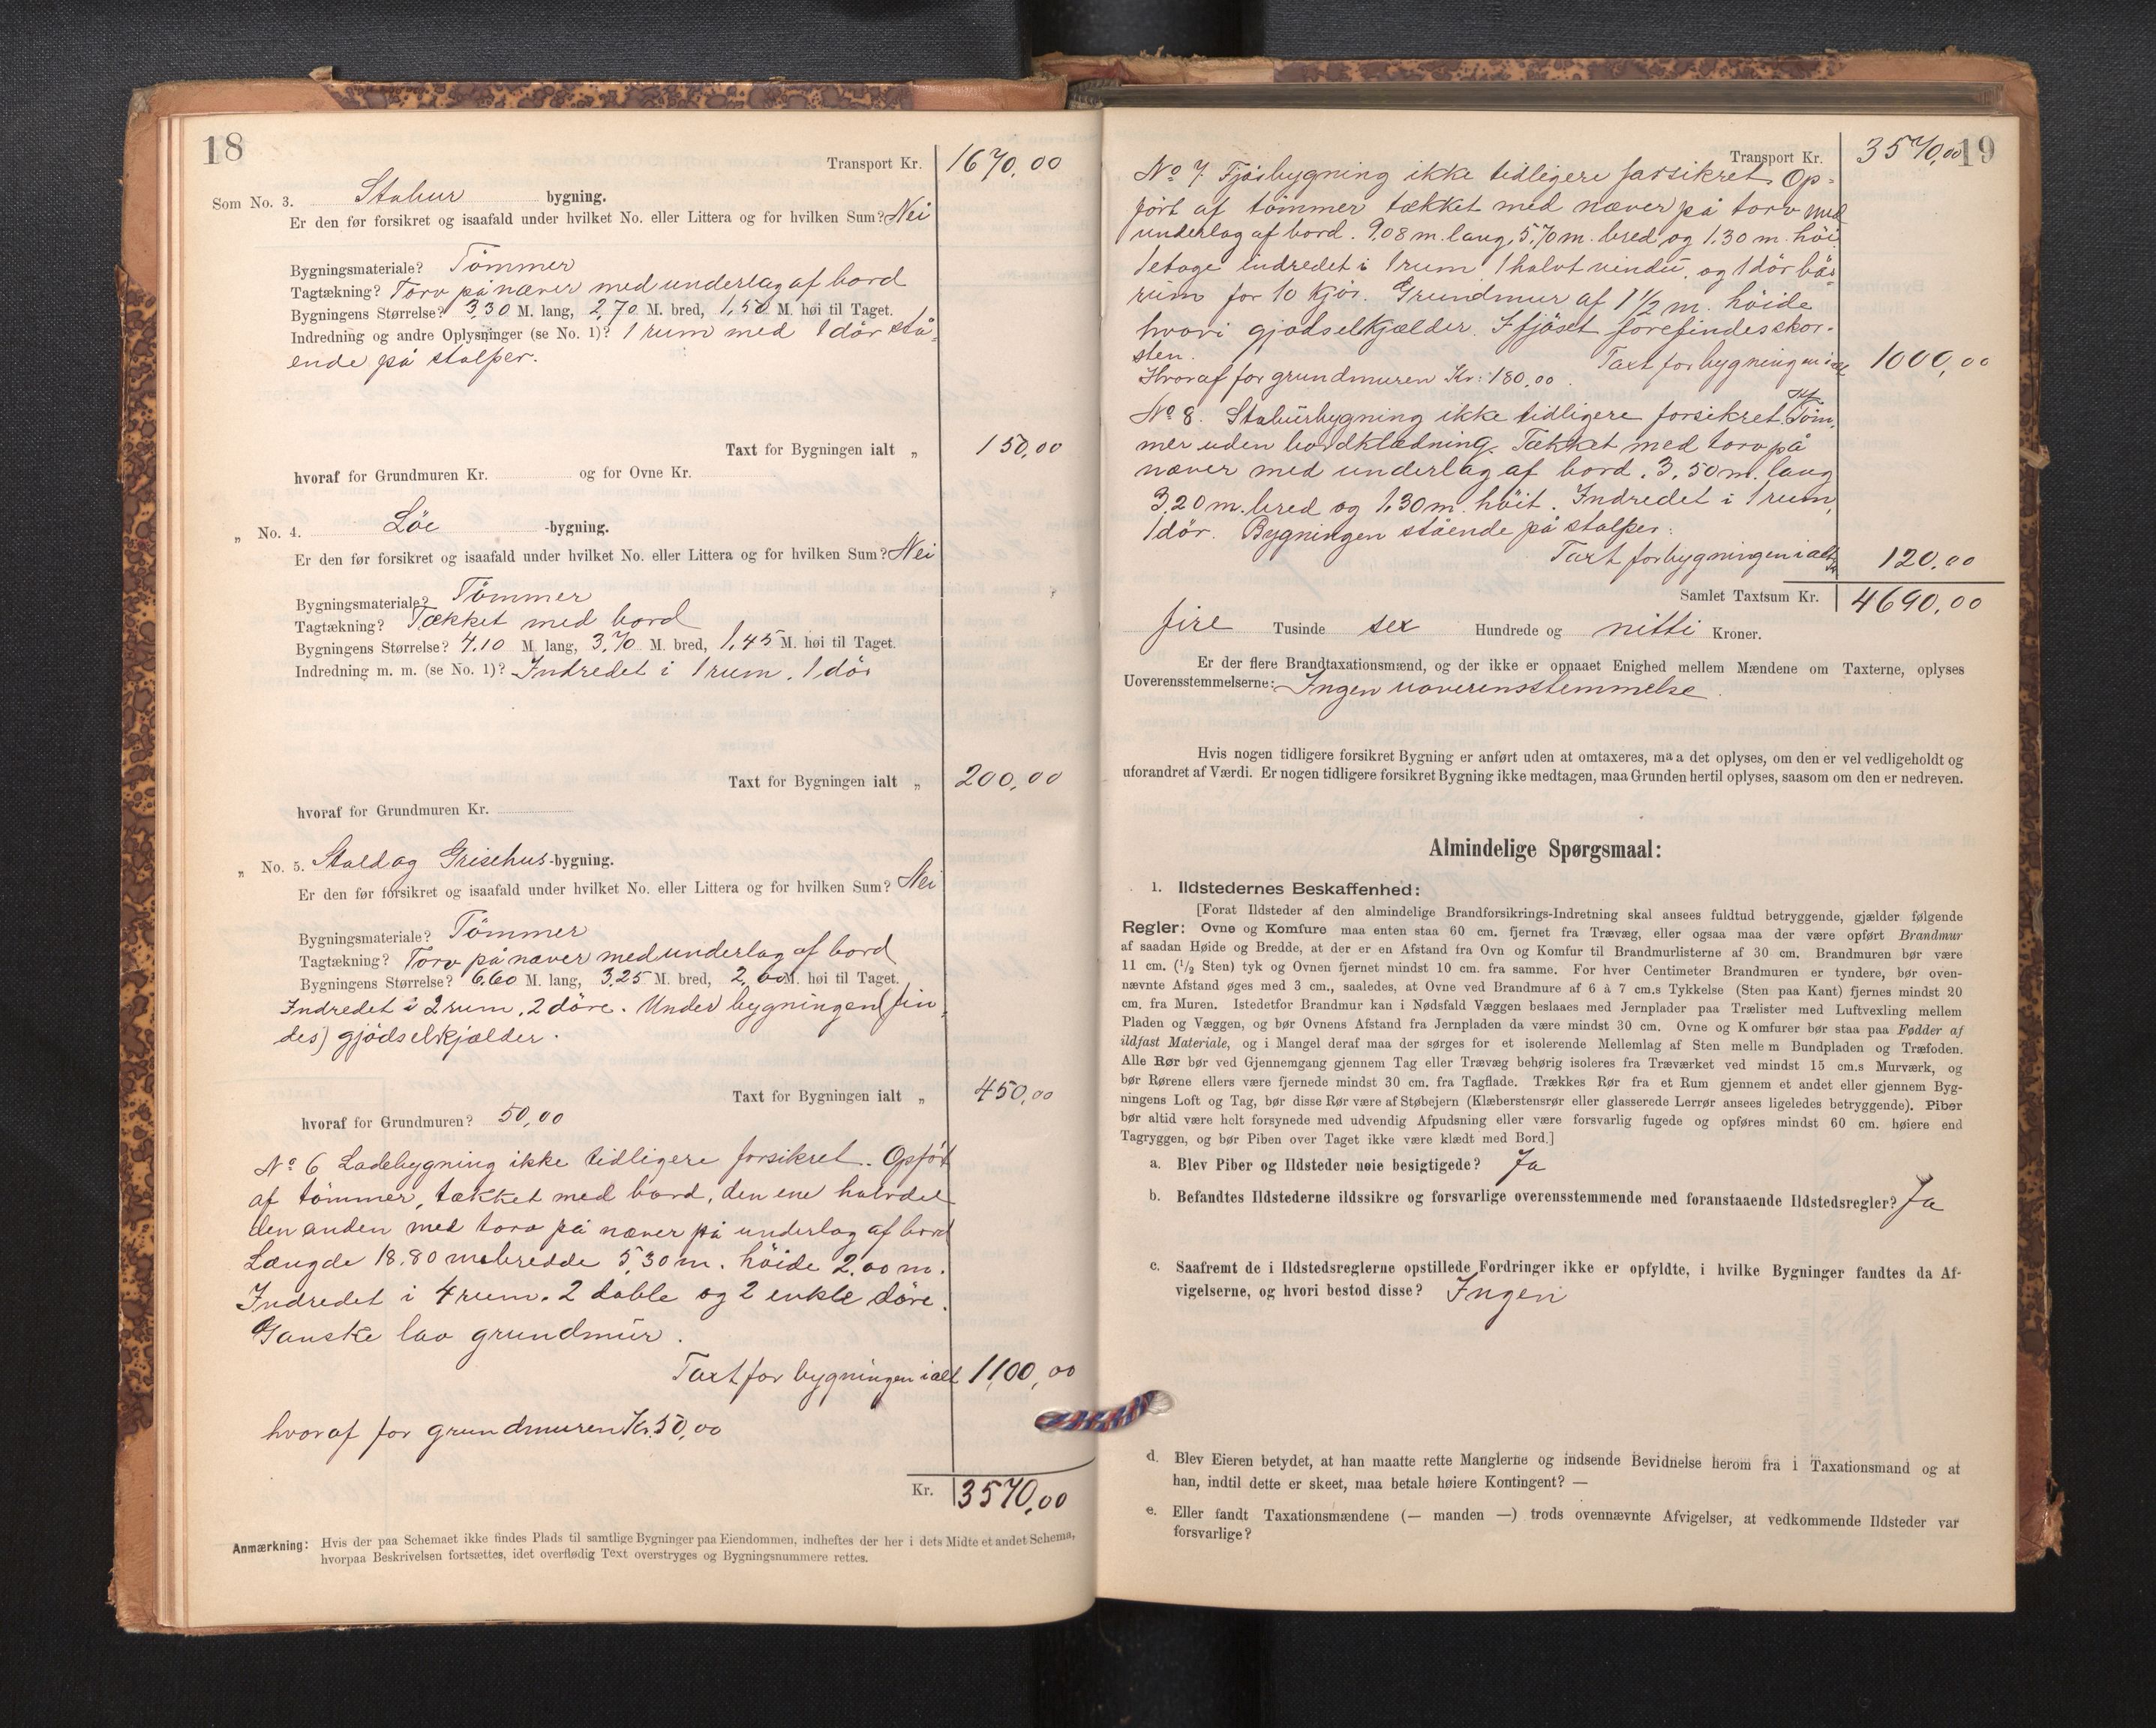 18
Transport Kr. 1670,00
Som No. 3. Stabur bygning.
Er den før forsikret og isaafald under hvilket No. eller Littera og for hvilken Sum? Nei
Bygningsmateriale? Tömmer
Tagtækning? Torv på næver med underlag af bord
Bygningens Størrelse? 3,30 M. lang, 2,70 M. bred, 1,50 M. høi til Taget.
Indredning og andre Oplysninger (se No. 1)? 1 rum med 1 dör stå-
ende på stolper.
Taxt for Bygningen ialt „ 150,00
hvoraf for Grundmuren Kr. og for Ovne Kr.
„ No. 4. Löe -bygning.
Er den før forsikret og isaafald under hvilket No. eller Littera og for hvilken Sum? Nei
Bygningsmateriale? Tömmer
Tagtækning? Tækket med bord
Bygningens Størrelse? 4.10 M. lang, 3,70 M. bred, 1,45 M. høi til Taget.
Indredning m. m. (se No. 1)? Indredet i 1 rum, 1 dör
Taxt for Bygningen ialt „ 200,00
hvoraf for Grundmuren Kr.
„ No. 5. Stald og Grisehus -bygning.
Er den før forsikret og isaafald under hvilket No. eller Littera og for hvilken Sum? Nei
Bygningsmateriale? Tömmer
Tagtækning? Torv på næver med underlag af bord
Bygningens Størrelse? 6,60 M. lang, 3,25 M. bred, 2,00 M. høi til Taget.
Indredet i 2 rum, 2 döre. Under bygningen (fin-
des) gjödselkjælder.
Taxt for Bygningen ialt „ 450,00
hvoraf for Grundmuren? 50,00
No 6 Ladebygning ikke tidligere forsikret. Opfört
af tömmer, tækket med bord, den ene halvdel
den anden med torv på næver på underlag af bord
Længde 18.80 m bredde 5,30 m. höide 2,00 m.
Indredet i 4 rum. 2 doble og 2 enkle döre.
Ganske lav grundmur.
Taxt for bygningen ialt 1100,00
hvoraf for grundmuren Kr. 50,00
Kr. 3570,00
Anmærkning: Hvis der paa Schemaet ikke findes Plads til samtlige Bygninger paa Eiendommen, indheftes der her i dets Midte et andet Schema,
hvorpaa Beskrivelsen fortsættes, idet overflødig Text overstryges og Bygningsnummere rettes.
19
Transport Kr. 3570,00
No 7. Fjösbygning ikke tidligere forsikret. Op-
fört af tömmer tækket med næver på torv med
underlag af bord. 9,08 m. lang, 5,70 m. bred og 1,30 m. höi
1 etage indredet i 1 rum 1 halvt vindu, og 1 dör bås-
rum for 10 kjör. Grundmur af 1 1/2 m. höide
hvori gjödselkjælder. I fjöset forefindes skor-
sten. Taxt for bygningen ialt 1000,00
Hvoraf for grundmuren Kr: 180,00.
No 8. Staburbygning ikke tidligere forsikret. Af Töm-
mer uden bordklædning. Tækket med torv på
næver med underlag af bord. 3,50 m. lang
3,20 m. bred og 1,30 m. höit. Indredet i 1 rum,
1 dör. Bygningen stående på stolper.
Taxt for bygningen ialt Kr 120,00
Samlet Taxtsum Kr. 4690,00
fire Tusinde sex Hundrede og nitti Kroner.
Er der flere Brandtaxationsmænd, og der ikke er opnaaet Enighed mellem Mændene om Taxterne, oplyses
Uoverensstemmelserne: Ingen uoverensstemmelse.
Hvis nogen tidligere forsikret Bygning er anført uden at omtaxeres, maa det oplyses, om den er vel vedligeholdt og
uforandret af Værdi. Er nogen tidligere forsikret Bygning ikke medtagen, maa Grunden hertil oplyses, saasom om den er nedreven.
Almindelige Spørgsmaal:
1. Ildstedernes Beskaffenhed:
[Forat Ildsteder af den almindelige Brandforsikrings-Indretning skal ansees fuldtud betryggende, gjælder følgende
Regler: Ovne og Komfure maa enten staa 60 cm. fjernet fra Trævæg, eller ogsaa maa der være opført Brandmur
af saadan Høide og Bredde, at der er en Afstand fra Ovn og Komfur til Brandmurlisterne af 30 cm. Brandmuren bør være
11 cm. (1/2 Sten) tyk og Ovnen fjernet mindst 10 cm. fra samme. For hver Centimeter Brandmuren er tyndere, bør oven-
nævnte Afstand øges med 3 cm., saaledes, at Ovne ved Brandmure af 6 à 7 cm.s Tykkelse (Sten paa Kant) fjernes mindst 20
cm. fra Muren. Istedetfor Brandmur kan i Nødsfald Væggen beslaaes med Jernplader paa Trælister med Luftvexling mellem
Pladen og Væggen, og bør Ovnens Afstand fra Jernpladen da være mindst 30 cm. Ovne og Komfurer bør staa paa Fødder af
ildfast Materiale, og i Mangel deraf maa der sørges for et isolerende Mellemlag af Sten mellem Bundpladen og Træfoden.
Alle Rør bør ved Gjennemgang gjennem Tag eller Trævæg behørig isoleres fra Træværket ved mindst 15 cm.s Murværk, og
bør Rørene ellers være fjernede mindst 30 cm. fra Tagflade. Trækkes Rør fra et Rum gjennem et andet eller gjennem Byg-
ningens Loft og Tag, bør disse Rør være af Støbejern (Klæberstensrør eller glasserede Lerrør ansees ligeledes betryggende). Piber
bør altid være helt forsynede med udvendig Afpudsning eller være forsvarlig fugede og opføres mindst 60 cm. høiere end
Tagryggen, og bør Piben over Taget ikke være klædt med Bord.]
a. Blev Piber og Ildsteder nøie besigtigede? Ja
b. Befandtes Ildstederne ildssikre og forsvarlige overensstemmende med foranstaaende Ildstedsregler? Ja
c. Saafremt de i Ildstedsreglerne opstillede Fordringer ikke er opfyldte, i hvilke Bygninger fandtes da Af-
vigelserne, og hvori bestod disse? Ingen
d. Blev Eieren betydet, at han maatte rette Manglerne og indsende Bevidnelse herom fra 1 Taxationsmand og at
han, indtil dette er skeet, maa betale høiere Kontingent? —
e. Eller fandt Taxationsmændene (— manden —) trods ovennævnte Afvigelser, at vedkommende Ildsteder var
forsvarlige?